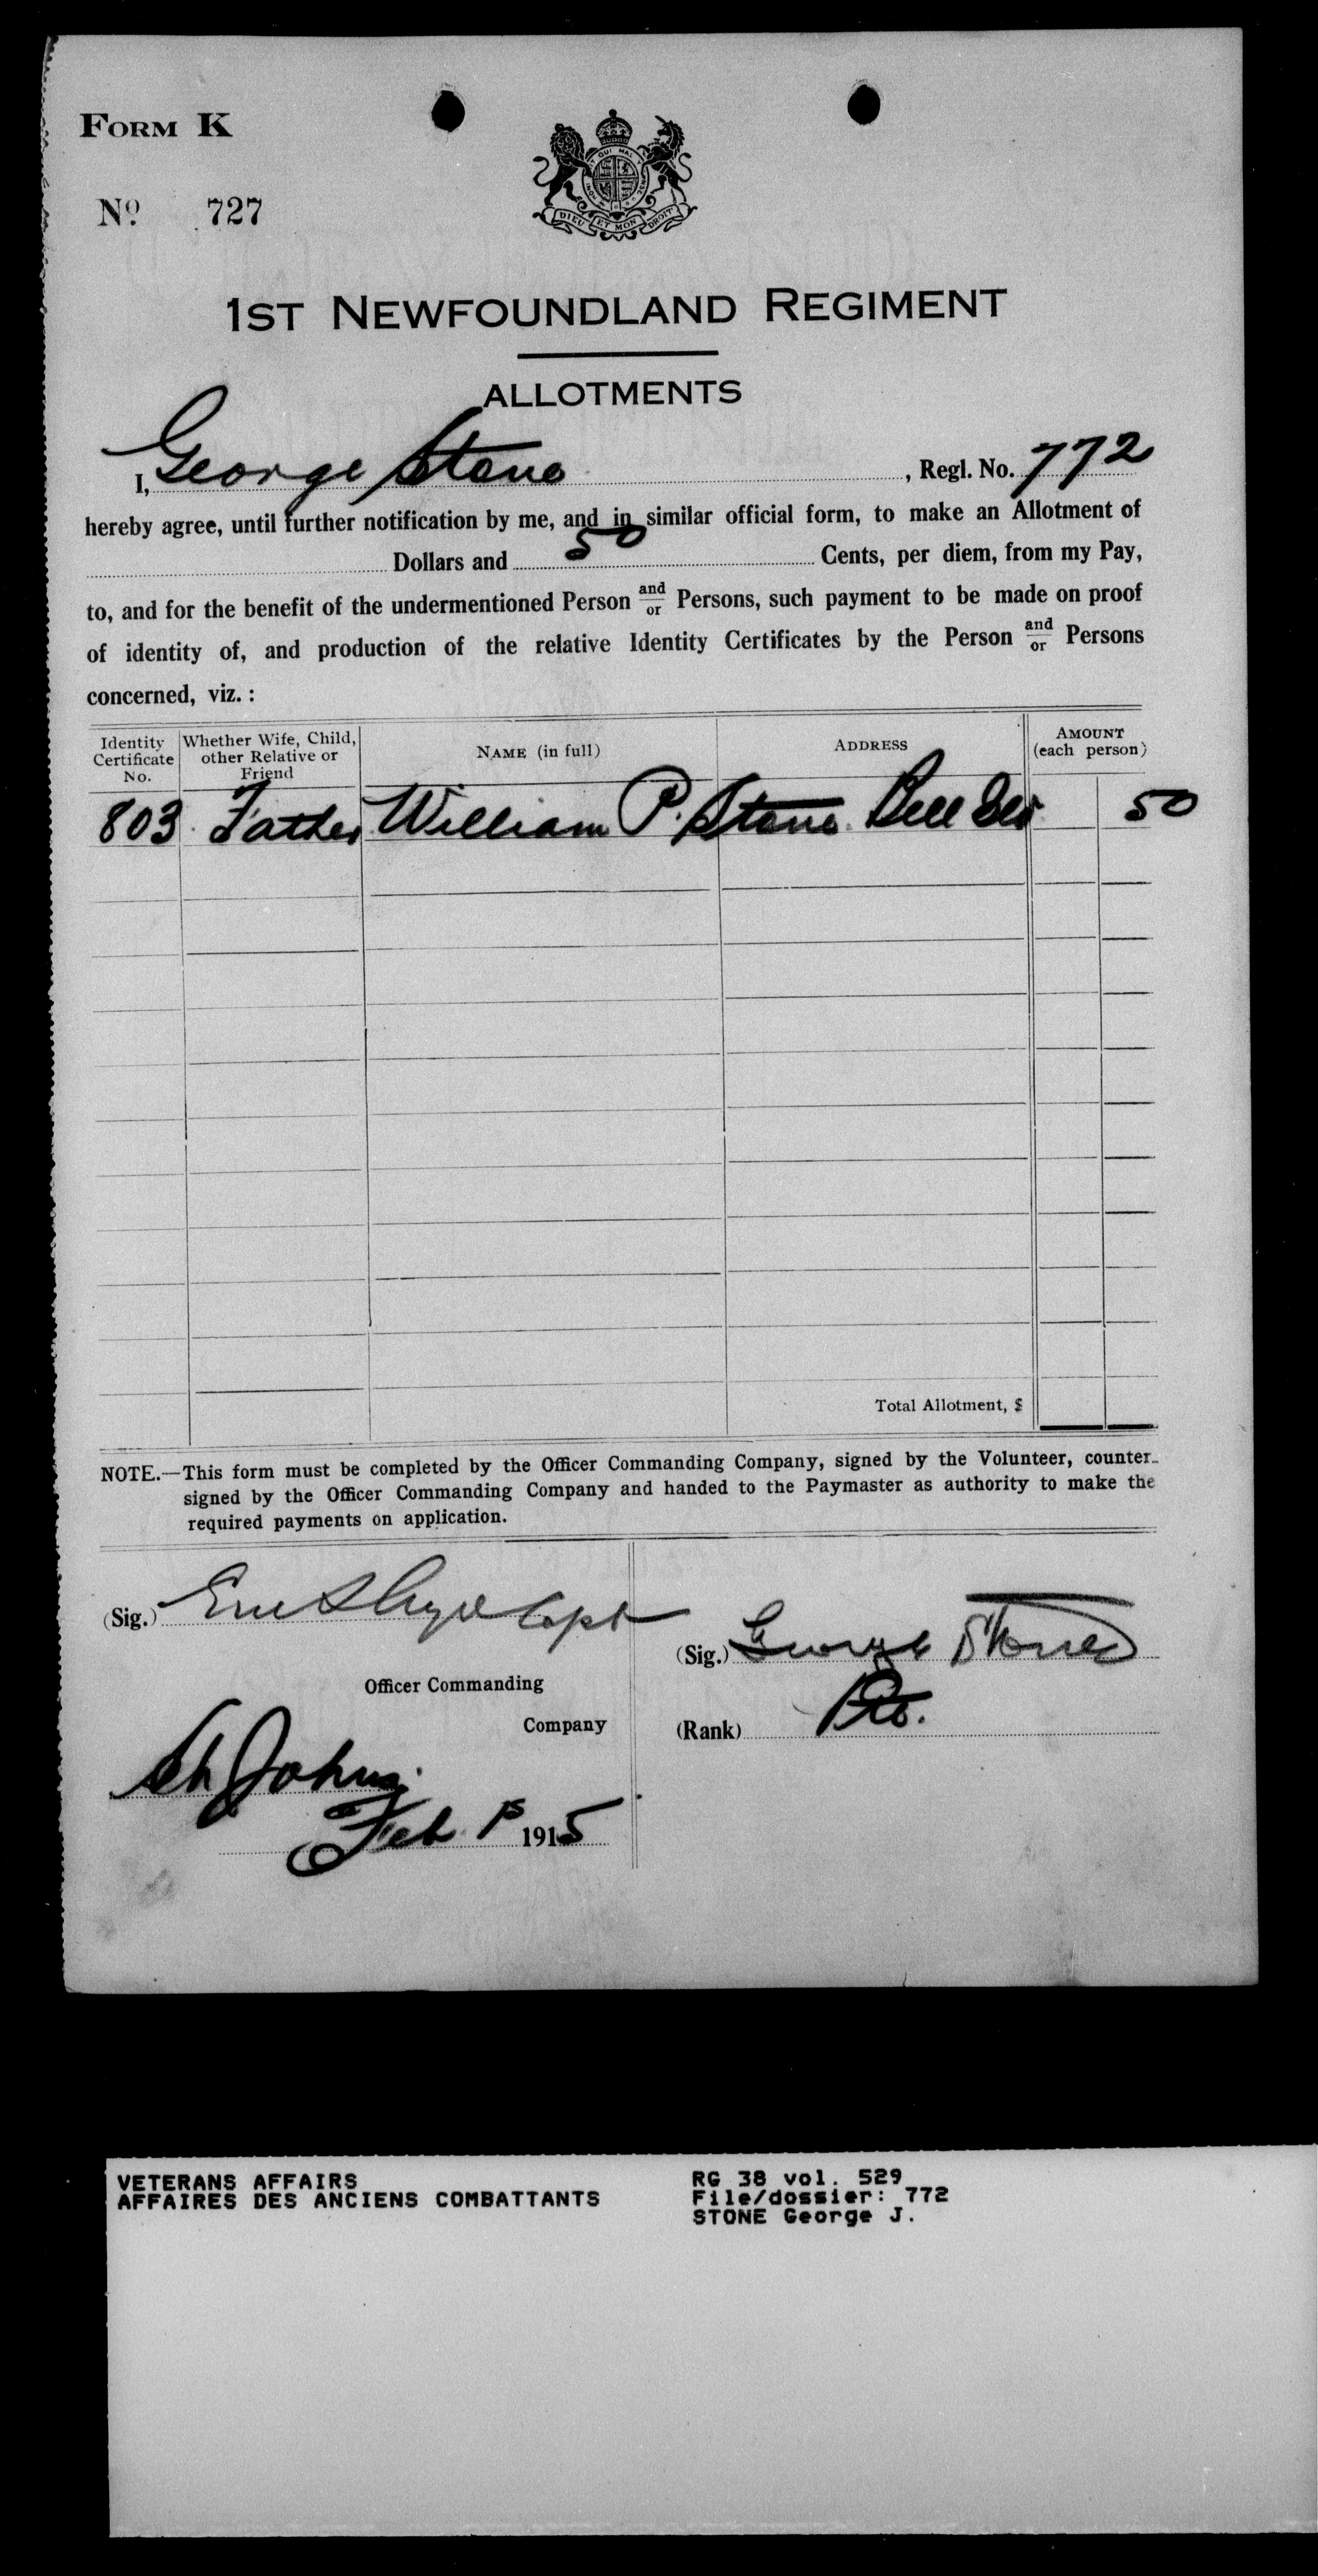 FORM K
No 727
DIEU ET MON DROIT
1ST NEWFOUNDLAND REGIMENT
ALLOTMENTS
I, George Stone, Regl. No. 772
hereby agree, until further notification by me, and in similar official form, to make an Allotment of
Dollars and 50 Cents, per diem, from my Pay,
to, and for the benefit of the undermentioned Person and/or Persons, such payment to be made on proof
of identity of, and production of the relative Identity Certificates by the Person and/or Persons
concerned, viz. :
Identity Certificate No. Whether Wife, Child, other Relative or Friend NAME (in full) ADDRESS AMOUNT (each person)
803 Father William P. Stone Bell Isld 50
Total Allotment, $
NOTE.—This form must be completed by the Officer Commanding Company, signed by the Volunteer, counter-
signed by the Officer Commanding Company and handed to the Paymaster as authority to make the
required payments on application.
(Sig.) Capt
Officer Commanding
Company
St Johns
Feb 1st 1915
(Sig.) George Stone
(Rank) Pte.
VETERANS AFFAIRS
AFFAIRES DES ANCIENS COMBATTANTS
RG 38 vol. 529
File/dossier: 772
STONE George J.